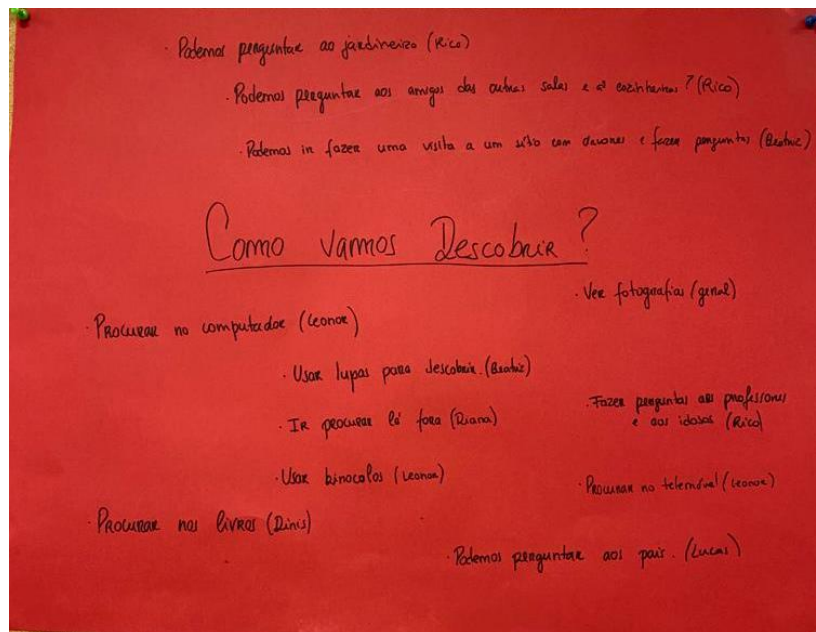 · Podemos perguntar ao jardineiro (Rico)
· Podemos perguntar aos amigos das outras salas e às cozinheiras? (Rico)
· Podemos ir fazer uma visita a um sítio com e fazer perguntas (Beatriz)
Como vamos Descobrir?
· Ver fotografias (geral)
· Procurar no computador (Leonor)
· Usar lupas para descobrir. (Beatriz)
· Fazer perguntas aos professores
e aos idosos (Rico)
· Ir procurar lá fora (Diana)
· Usar binocolos (Leonor)
· Procurar no telemóvel (Leonor)
· Procurar nos livros (Dinis)
· Podemos perguntar aos pais. (Lucas)